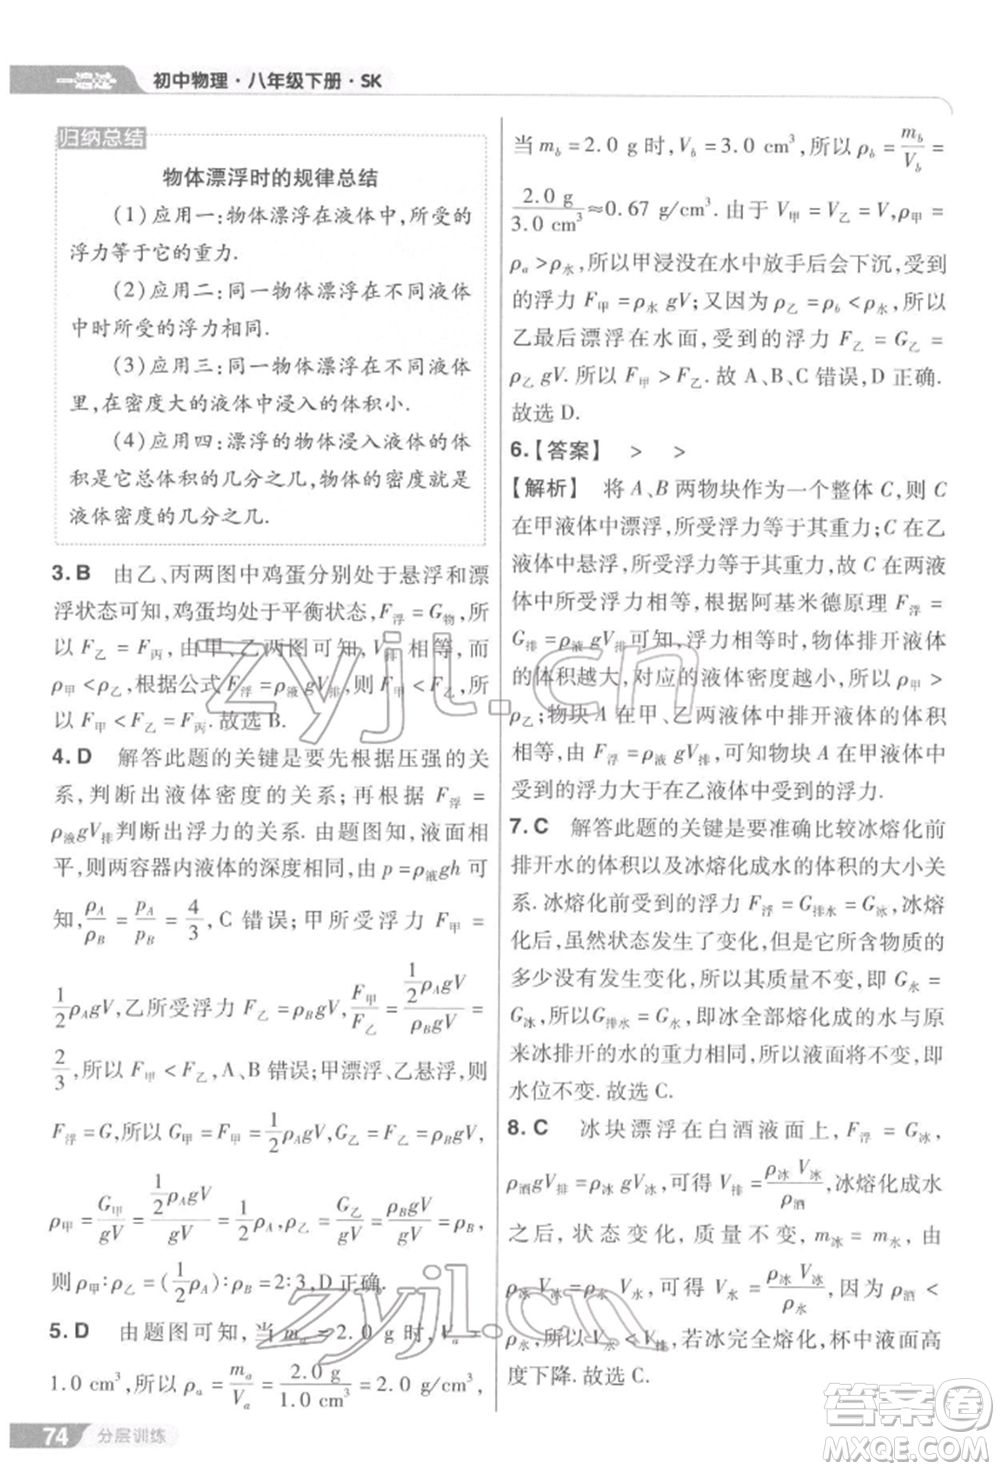 一遍过
初中物理·八年级下册·SK
归纳总结
物体漂浮时的规律总结
(1)应用一:物体漂浮在液体中,所受的
浮力等于它的重力.
(2)应用二:同一物体漂浮在不同液体
中时所受的浮力相同.
(3)应用三:同一物体漂浮在不同液体
中,在密度大的液体中浸入的体积小.
(4)应用四:漂浮的物体浸入液体的体
积是它总体积的几分之几,物体密度就是
液体密度的几分之几.
3.B 由乙、丙两图中鸡蛋分别处于悬浮和漂
浮状态可知,鸡蛋均处于平衡状态,F浮=G物,所
以 F乙=F丙,由甲、乙两图可知,V排相等,而
ρ甲<ρ乙,根据公式F浮=ρ液gV排可知F甲<F乙,所
以 F甲<F乙=F丙.故选 B.
4.D 解答此题的关键是要先根据压强的关
系,判断出液体密度的关系;再根据 F浮=
ρ液gV排判断出浮力的关系.由题图可知,液面相
平,则两容器内液体的深度相同,由 p=ρ液gh可
知,ρA/ρB=pA/pB=4/3,C 错误;甲所受浮力 F甲=
1/2ρAgV,乙所受浮力 F乙=ρBgV,F甲/F乙=(1/2ρAgV)/(ρBgV)=
2/3,所以 F甲<F乙,A、B 错误;甲漂浮、乙悬浮,
F浮=G,所以 G甲=F甲=1/2ρAgV,G乙=F乙=ρBgV,
ρ甲=G甲/gV=(1/2ρAgV)/gV=1/2ρA,ρ乙=G乙/gV=ρBgV/gV=ρB,
则 ρ甲:ρ乙=(1/2ρA):ρB=2:3,D 正确.
5.D 由题图可知,当 ma=2.0 g 时,Va=
1.0 cm³,所以 ρa=ma/Va=2.0 g/1.0 cm³=2.0 g/cm³,
当 mb=2.0 g 时,Vb=3.0 cm³,所以 ρb=mb/Vb=
2.0 g/3.0 cm³≈0.67 g/cm³.由于 V甲=V乙=V,ρ甲=
ρa>ρ水,所以甲浸没在水中放手后会下沉,受到
的浮力 F甲=ρ水gV;又因为 ρ乙=ρb<ρ水,所以
乙最后漂浮在水面,受到的浮力 F乙=G乙=
ρ乙gV.所以 F甲>F乙.故 A、B、C 错误,D 正确.
故选 D.
6.【答案】 > >
【解析】 将 A、B 两物块作为一个整体 C,则 C
在甲液体中漂浮,所受浮力等于其重力;C 在乙
液体中悬浮,所受浮力等于其重力;故 C 在两液
体中所受浮力相等,根据阿基米德原理 F浮=
G排=ρ液gV排可知,浮力相等时,物体排开液体
的体积越大,对应的液体密度越小,所以 ρ甲>
ρ乙;物块 A 在甲、乙两液体中排开液体的体积
相等,由 F浮=ρ液gV排,可知物块 A 在甲液体中
受到的浮力大于在乙液体中受到的浮力.
7.C 解答此题的关键是要准确比较冰熔化前
排开水的体积以及冰熔化成水的体积的大小关
系.冰熔化前受到的浮力 F浮=G排水=G冰,冰熔
化后,虽然状态发生了变化,但是它所含物质的
多少没有发生变化,所以其质量不变,即 G水=
G冰,所以G排水=G水,即冰全部熔化成的水与原
来冰排开的水的重力相同,所以液面不变,即
水位不变.故选 C.
8.C 冰块漂浮在白酒液面上,F浮=G冰,
ρ酒gV排=ρ冰gV冰,可得 V排=ρ冰V冰/ρ酒,冰熔化成水
之后,状态变化,质量不变,m冰=m水,
ρ冰V冰=ρ水V水,可得 V水=ρ冰V冰/ρ水,因为 ρ酒<
ρ水,所以 V水<V排.若冰完全熔化,杯中液面高
度下降.故选 C.
74 分层训练
zyjl.cn
zyjl.cn
答案圈
MXQE.COM